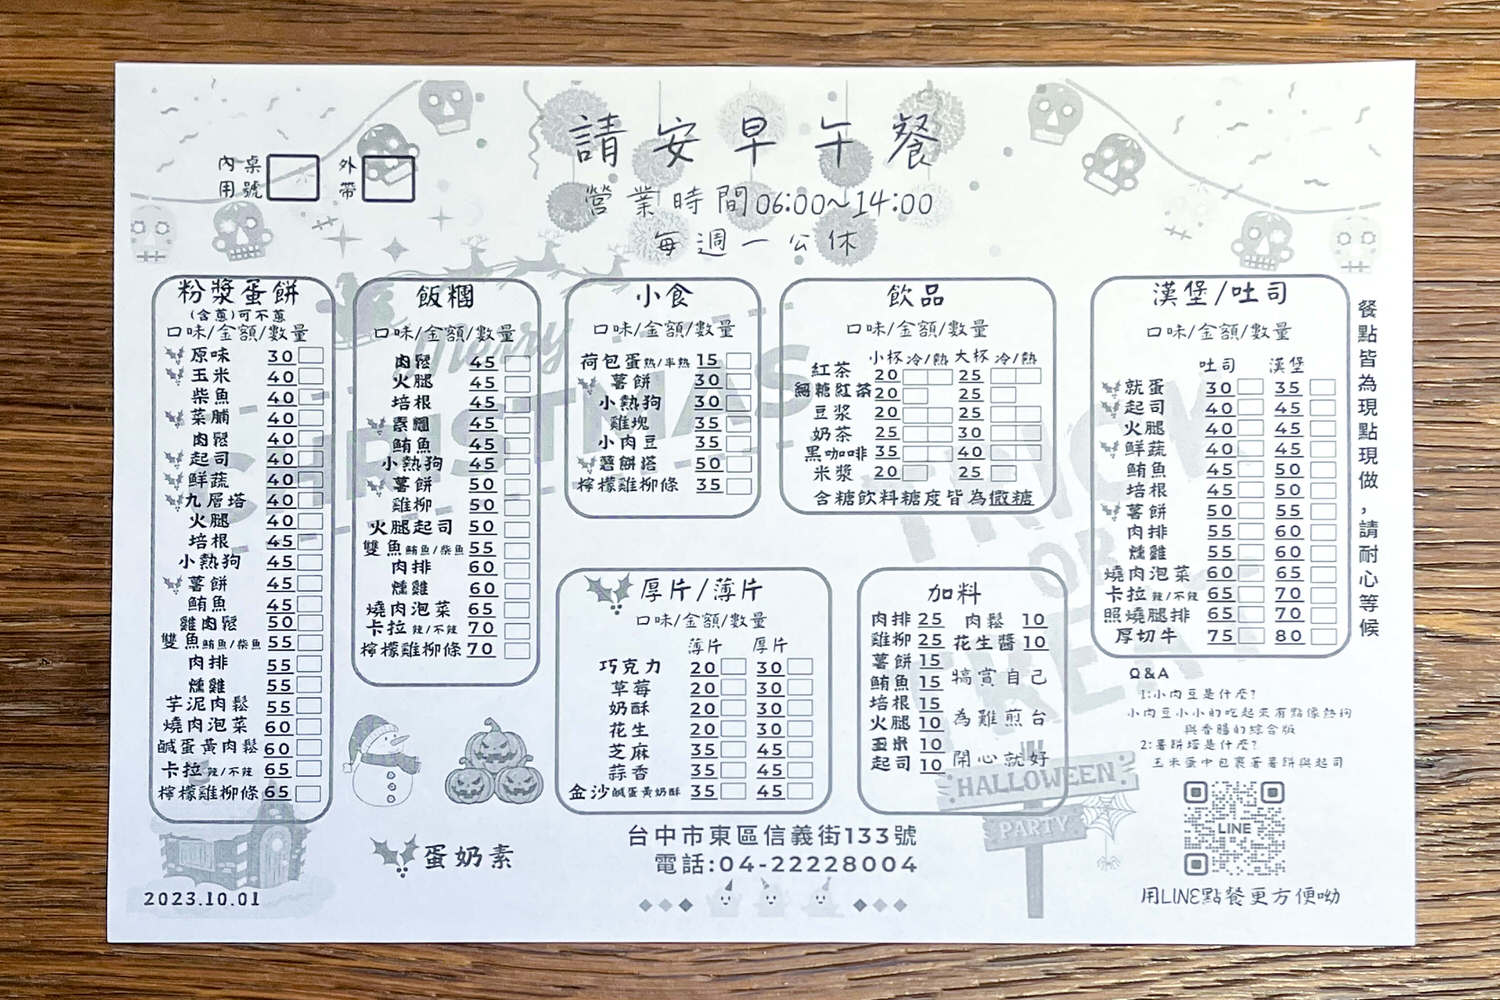 請安早午餐
營業時間06:00~14:00
每週一公休
內用 桌號
外帶
粉漿蛋餅
(含蔥)可不蔥
口味/金額/數量
原味 30
玉米 40
柴魚 40
菜脯 40
肉鬆 40
起司 40
鮮蔬 40
九層塔 40
火腿 40
培根 45
小熱狗 45
薯餅 45
鮪魚 45
雞肉鬆 50
雙魚鮪魚/柴魚 55
肉排 55
燻雞 55
芋泥肉鬆 55
燒肉泡菜 60
鹹蛋黃肉鬆 60
卡拉辣/不辣 65
檸檬雞柳條 65
飯糰
口味/金額/數量
肉鬆 45
火腿 45
培根 45
素糰 45
鮪魚 45
小熱狗 45
薯餅 50
雞柳 50
火腿起司 50
雙魚鮪魚/柴魚 55
肉排 60
燻雞 60
燒肉泡菜 65
卡拉辣/不辣 70
檸檬雞柳條 70
小食
口味/金額/數量
荷包蛋熟/半熟 15
薯餅 30
小熱狗 30
雞塊 35
小肉豆 35
薯餅塔 50
檸檬雞柳條 35
飲品
口味/金額/數量
小杯 冷/熱 大杯 冷/熱
紅茶 20 25
無糖紅茶 20 25
豆漿 20 25
奶茶 25 30
黑咖啡 35 40
米漿 20 25
含糖飲料糖度皆為微糖
漢堡/吐司
口味/金額/數量
吐司 漢堡
就蛋 30 35
起司 40 45
火腿 40 45
鮮蔬 40 45
鮪魚 45 50
培根 45 50
薯餅 50 55
肉排 55 60
燻雞 55 60
燒肉泡菜 60 65
卡拉辣/不辣 65 70
照燒腿排 65 70
厚切牛 75 80
餐點皆為現點現做,請耐心等候
厚片/薄片
口味/金額/數量
薄片 厚片
巧克力 20 30
草莓 20 30
奶酥 20 30
花生 20 30
芝麻 35 45
蒜香 35 45
金沙鹹蛋黃奶酥 35 45
加料
肉排 25 肉鬆 10
雞柳 25 花生醬 10
薯餅 15
鮪魚 15
培根 15
火腿 10
玉米 10
起司 10
犒賞自己
為難煎台
開心就好
Q&A
1:小肉豆是什麼?
小肉豆小小的吃起來有點像熱狗
與香腸的綜合版
2:薯餅塔是什麼?
玉米蛋中包裹著薯餅與起司
LINE
用LINE點餐更方便呦
蛋奶素
台中市東區信義街133號
電話:04-22228004
2023.10.01
Merry
CHRISTMAS
TRICK
OR
TREAT
HALLOWEEN
PARTY